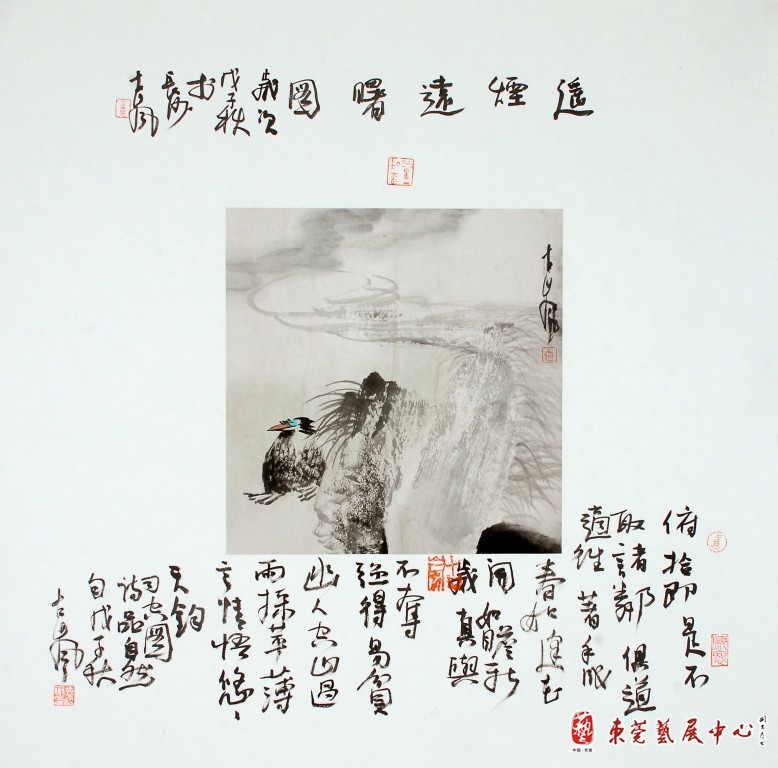 遥煙遠曙圖
歲次
戊子秋
於
長沙
俯拾即是不
取諸鄰俱道
適往著手成
春如逢花
開如瞻新
歲真與
不奪
强得易貧
幽人空山過
雨採苹薄
言情悟悠、
天鈞
司空圖
詩品自然
句戊子秋
藝
中國 東莞
東莞藝展中心